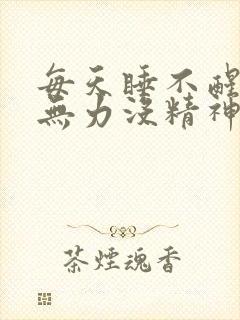 每天睡不醒
無力沒精神
茶煙魂香